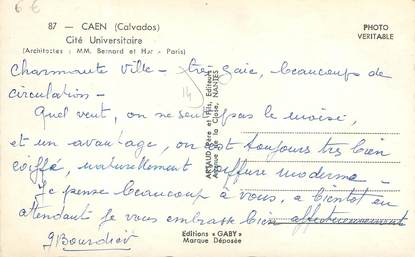 6 €
87 — CAEN (Calvados)
Cité Universitaire
(Architectes : MM. Bernard et - Paris)
PHOTO
VERITABLE
charmante ville - très gaie, beaucoup de
circulation -
Quel vent, on ne sent pas le moisi,
et un avantage, on est toujours très bien
coiffé, naturellement coiffure moderne -
Je pense beaucoup à vous, à bientôt en
attendant je vous embrasse bien affectueusement
ARTAUD Père et Fils, Editeurs
Avenue de la Close, NANTES
Editions "GABY"
Marque Déposée